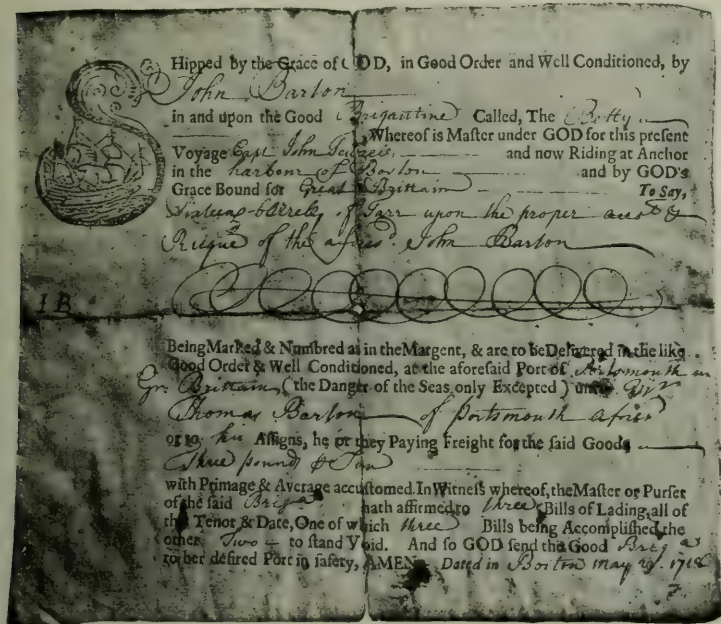 SHipped by the Grace of GOD, in Good Order and Well Conditioned, by
John Barton
in and upon the Good Brigantine Called, The Betty
Whereof is Maſter under GOD for this preſent
Voyage Capt John and now Riding at Anchor
in the harbour of Boston and by GOD's
Grace Bound for Great Brittain To Say,
Sixteen barrels of Tarr upon the proper accot &
Risque of the afores.d John Barton
I B
Being Marked & Numbred as in the Margent, & are to be Delivered in the like
Good Order & Well Conditioned, at the aforeſaid Port of Portsmouth in
Gr. Brittain (the Danger of the Seas only Excepted) unto
Thomas Barton of portsmouth afores.d
or to his Aſſigns, he or they Paying Freight for the ſaid Goods
Three pounds Tun
with Primage & Average accuſtomed. In Witneſs whereof, the Maſter or Purſer
of the ſaid Briga hath affirmed to three Bills of Lading, all of
this Tenor & Date, One of which three Bills being Accompliſhed, the
other Two to ſtand Void. And ſo GOD ſend the Good Briga
to her deſired Port in ſafety, AMEN. Dated in Boston May 1718